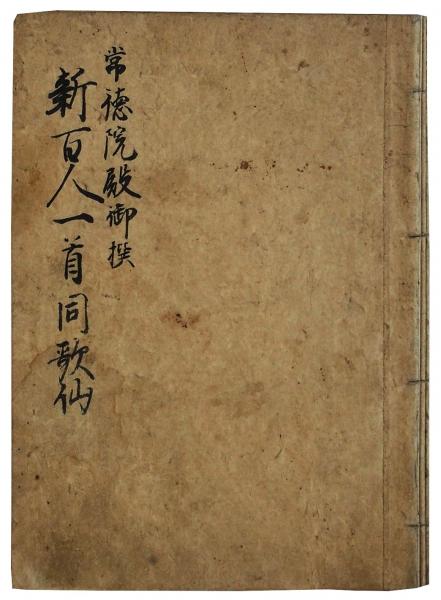 常徳院殿御撰
新百人一首同歌仙